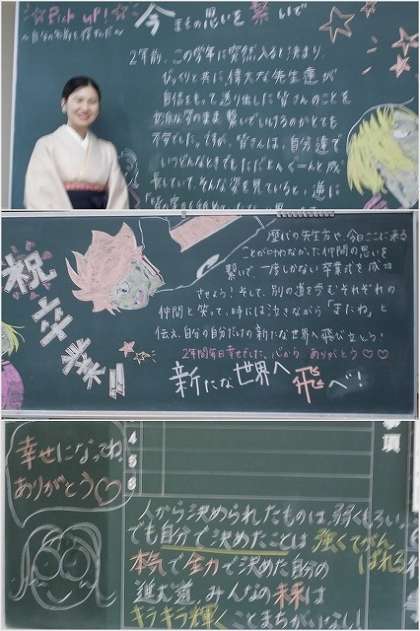 ☆Pick up!☆
今までの思いを繋いで
2年前、この学年に突然入ると決まり、
びっくりと共に、偉大な先生達が
自信をもって送り出した皆さんのことを
そのまま繋いでいけるのかとても
不安でした。ですが、皆さんは、自分達で
いつどんなときでもぐーんと成
長していて、そんな姿を見ていると、逆に
祝卒業!!
歴代の先生方や、今日ここに来る
ことが叶わなかった仲間の思いを
繋いで、一度しかない卒業式を成功
させよう!そして、別の道を歩むそれぞれの
仲間と笑って、時には泣きながら「またね」と
伝え、自分の自分だけの新たな世界へ飛び立とう!
2年間毎日幸せでした。心から ありがとう♡♡
新たな世界へ飛べ!
幸せになってね
ありがとう♡
4
5
6
事項
人から決められたものは、弱くもろい。
でも自分で決めたことは 強くてがん
ばれる
本気で全力で決めた自分の
進む道、みんなの未来は
キラキラ輝くことまちがいなし!